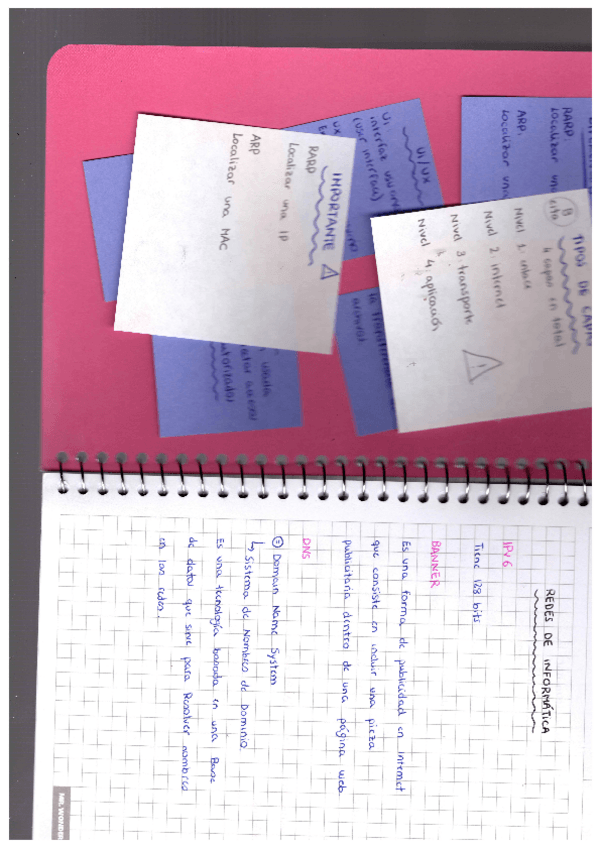 RARP.
Localizar una
ARP.
Localizar una
TIPOS DE CAPAS
4 capas en total
Nivel 1: enlace
Nivel 2: internet
Nivel 3: transporte
Nivel 4: aplicación
UI/UX
UI
interfaz usuario
(user interface)
UX
IMPORTANTE
RARP
Localizar una IP
ARP
Localizar una MAC
REDES DE INFORMÁTICA
IPV6
Tiene 128 bits
BANNER
Es una forma de publicidad en Internet
que consiste en incluir una pieza
publicitaria dentro de una página web.
DNS
Domain Name System
↳ Sistema de Nombres de Dominio
Es una tecnología basada en una Base
de datos que sirve para Resolver nombres
en las redes.
MR. WONDER